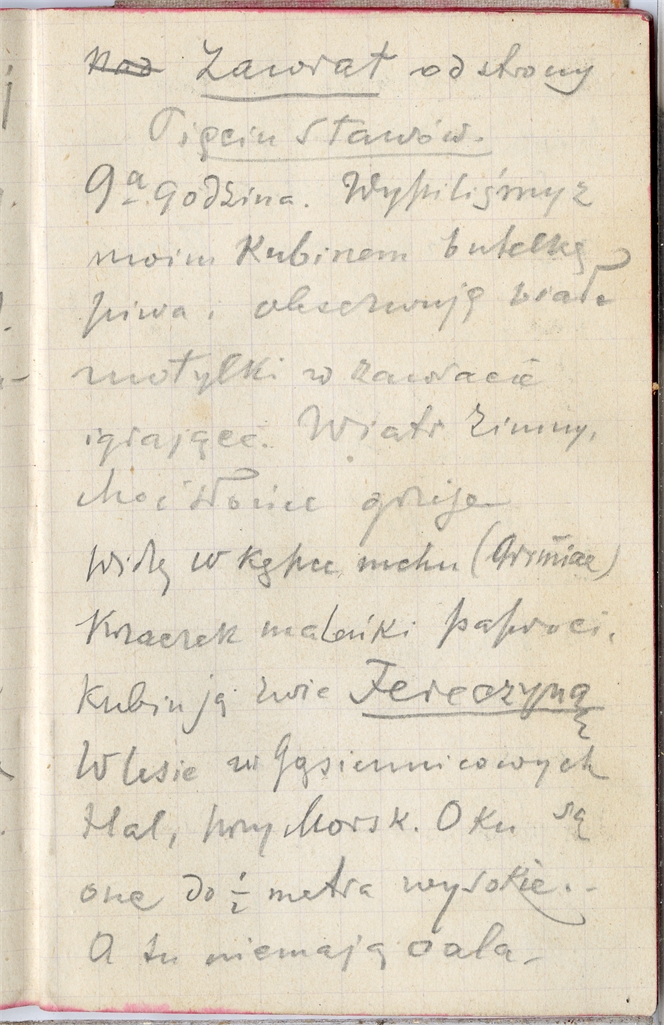 Nad Zawrat od strony
Pięciu Stawów.
9ª godzina. Wypiliśmy z
moim Kubinem butelkę
piwa i obserwuję białe
motylki w zawracie
igrające. Wiatr zimny,
choć słońce grzeje
Widzę w kępce mchu (Grimiae)
Kraczek maleńki paproci,
Kubin ją zwie Fereczyną
W lesie w Gąsiennicowych
Hal, przy Morsk. Oku są
one do ½ metra wysokie. -
A tu niemają cala -